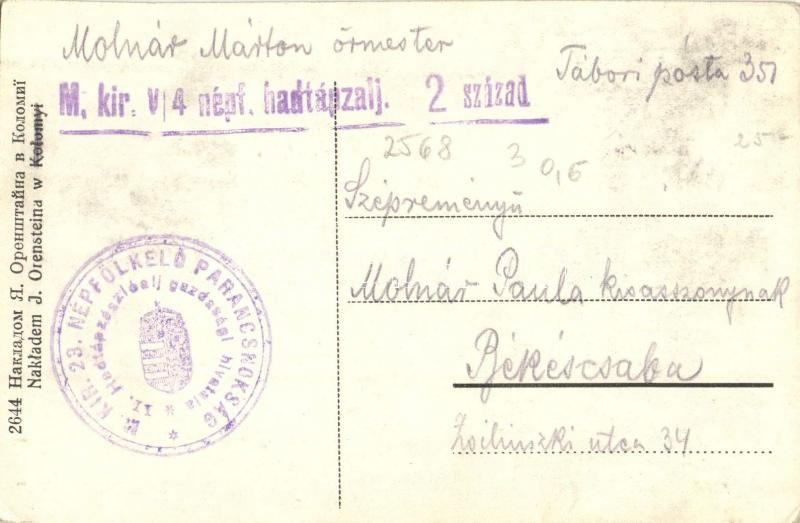 Molnár Márton őrmester
Tábori posta 351
M. kir. V/4 népf. hadtápzalj. 2 század
2568 3 0,6 25-
Szépreményű
Molnár Paula kisasszonynak
Békéscsaba
utca 34
M. KIR. 23. NÉPFÖLKELŐ PARANCSNOKSÁG
Hadtápzászlóalj gazdasági hivatala
II.
2644 Накладом Я. Оренштайна в Коломиї
Nakładem J. Orensteina w Kołomyi